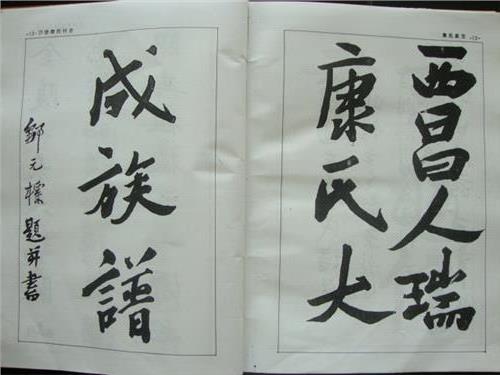 西昌人瑞
康氏大
成族譜
鄒元標題并書